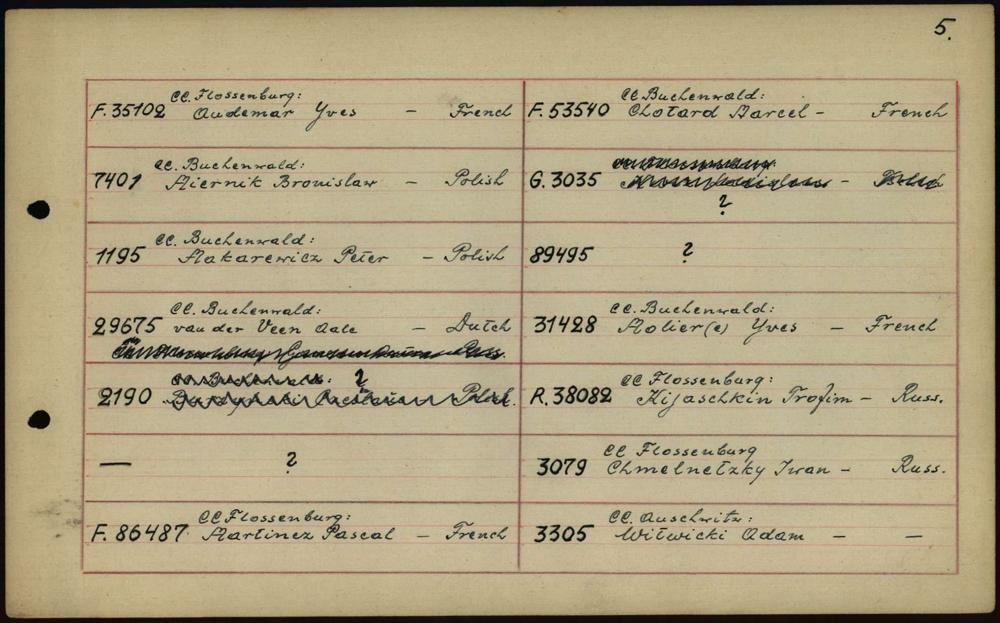 5.
CC. Flossenburg:
F. 35102 Audemar Yves — French
CC. Buchenwald:
7401 Miernik Bronislaw — Polish
CC. Buchenwald:
1195 Makarewicz Peter — Polish
CC. Buchenwald:
29675 van der Veen Aale — Dutch
?
2190
— ?
CC Flossenburg:
F. 86487 Martinez Pascal — French
CC Buchenwald:
F. 53540 Chotard Marcel — French
G. 3035 —
?
89495 ?
CC. Buchenwald:
31428 Molier(e) Yves — French
CC Flossenburg:
R. 38082 Kijaschkin Trofim — Russ.
CC Flossenburg
3079 Chmelnetzky Iwan — Russ.
CC. Auschwitz:
3305 Witwicki Adam — —